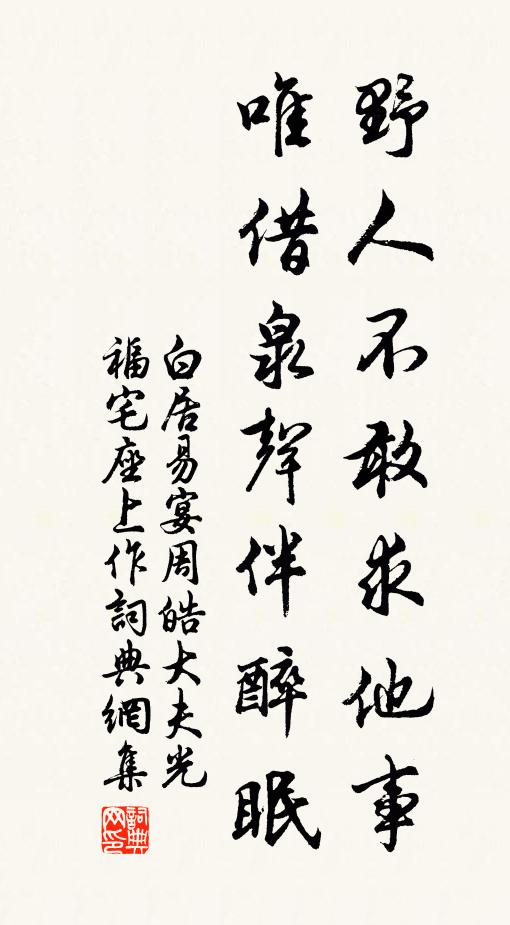 野人不敢求他事
唯借泉聲伴醉眠
白居易宴周皓大夫光
福宅座上作詞典網集
詞典
网印